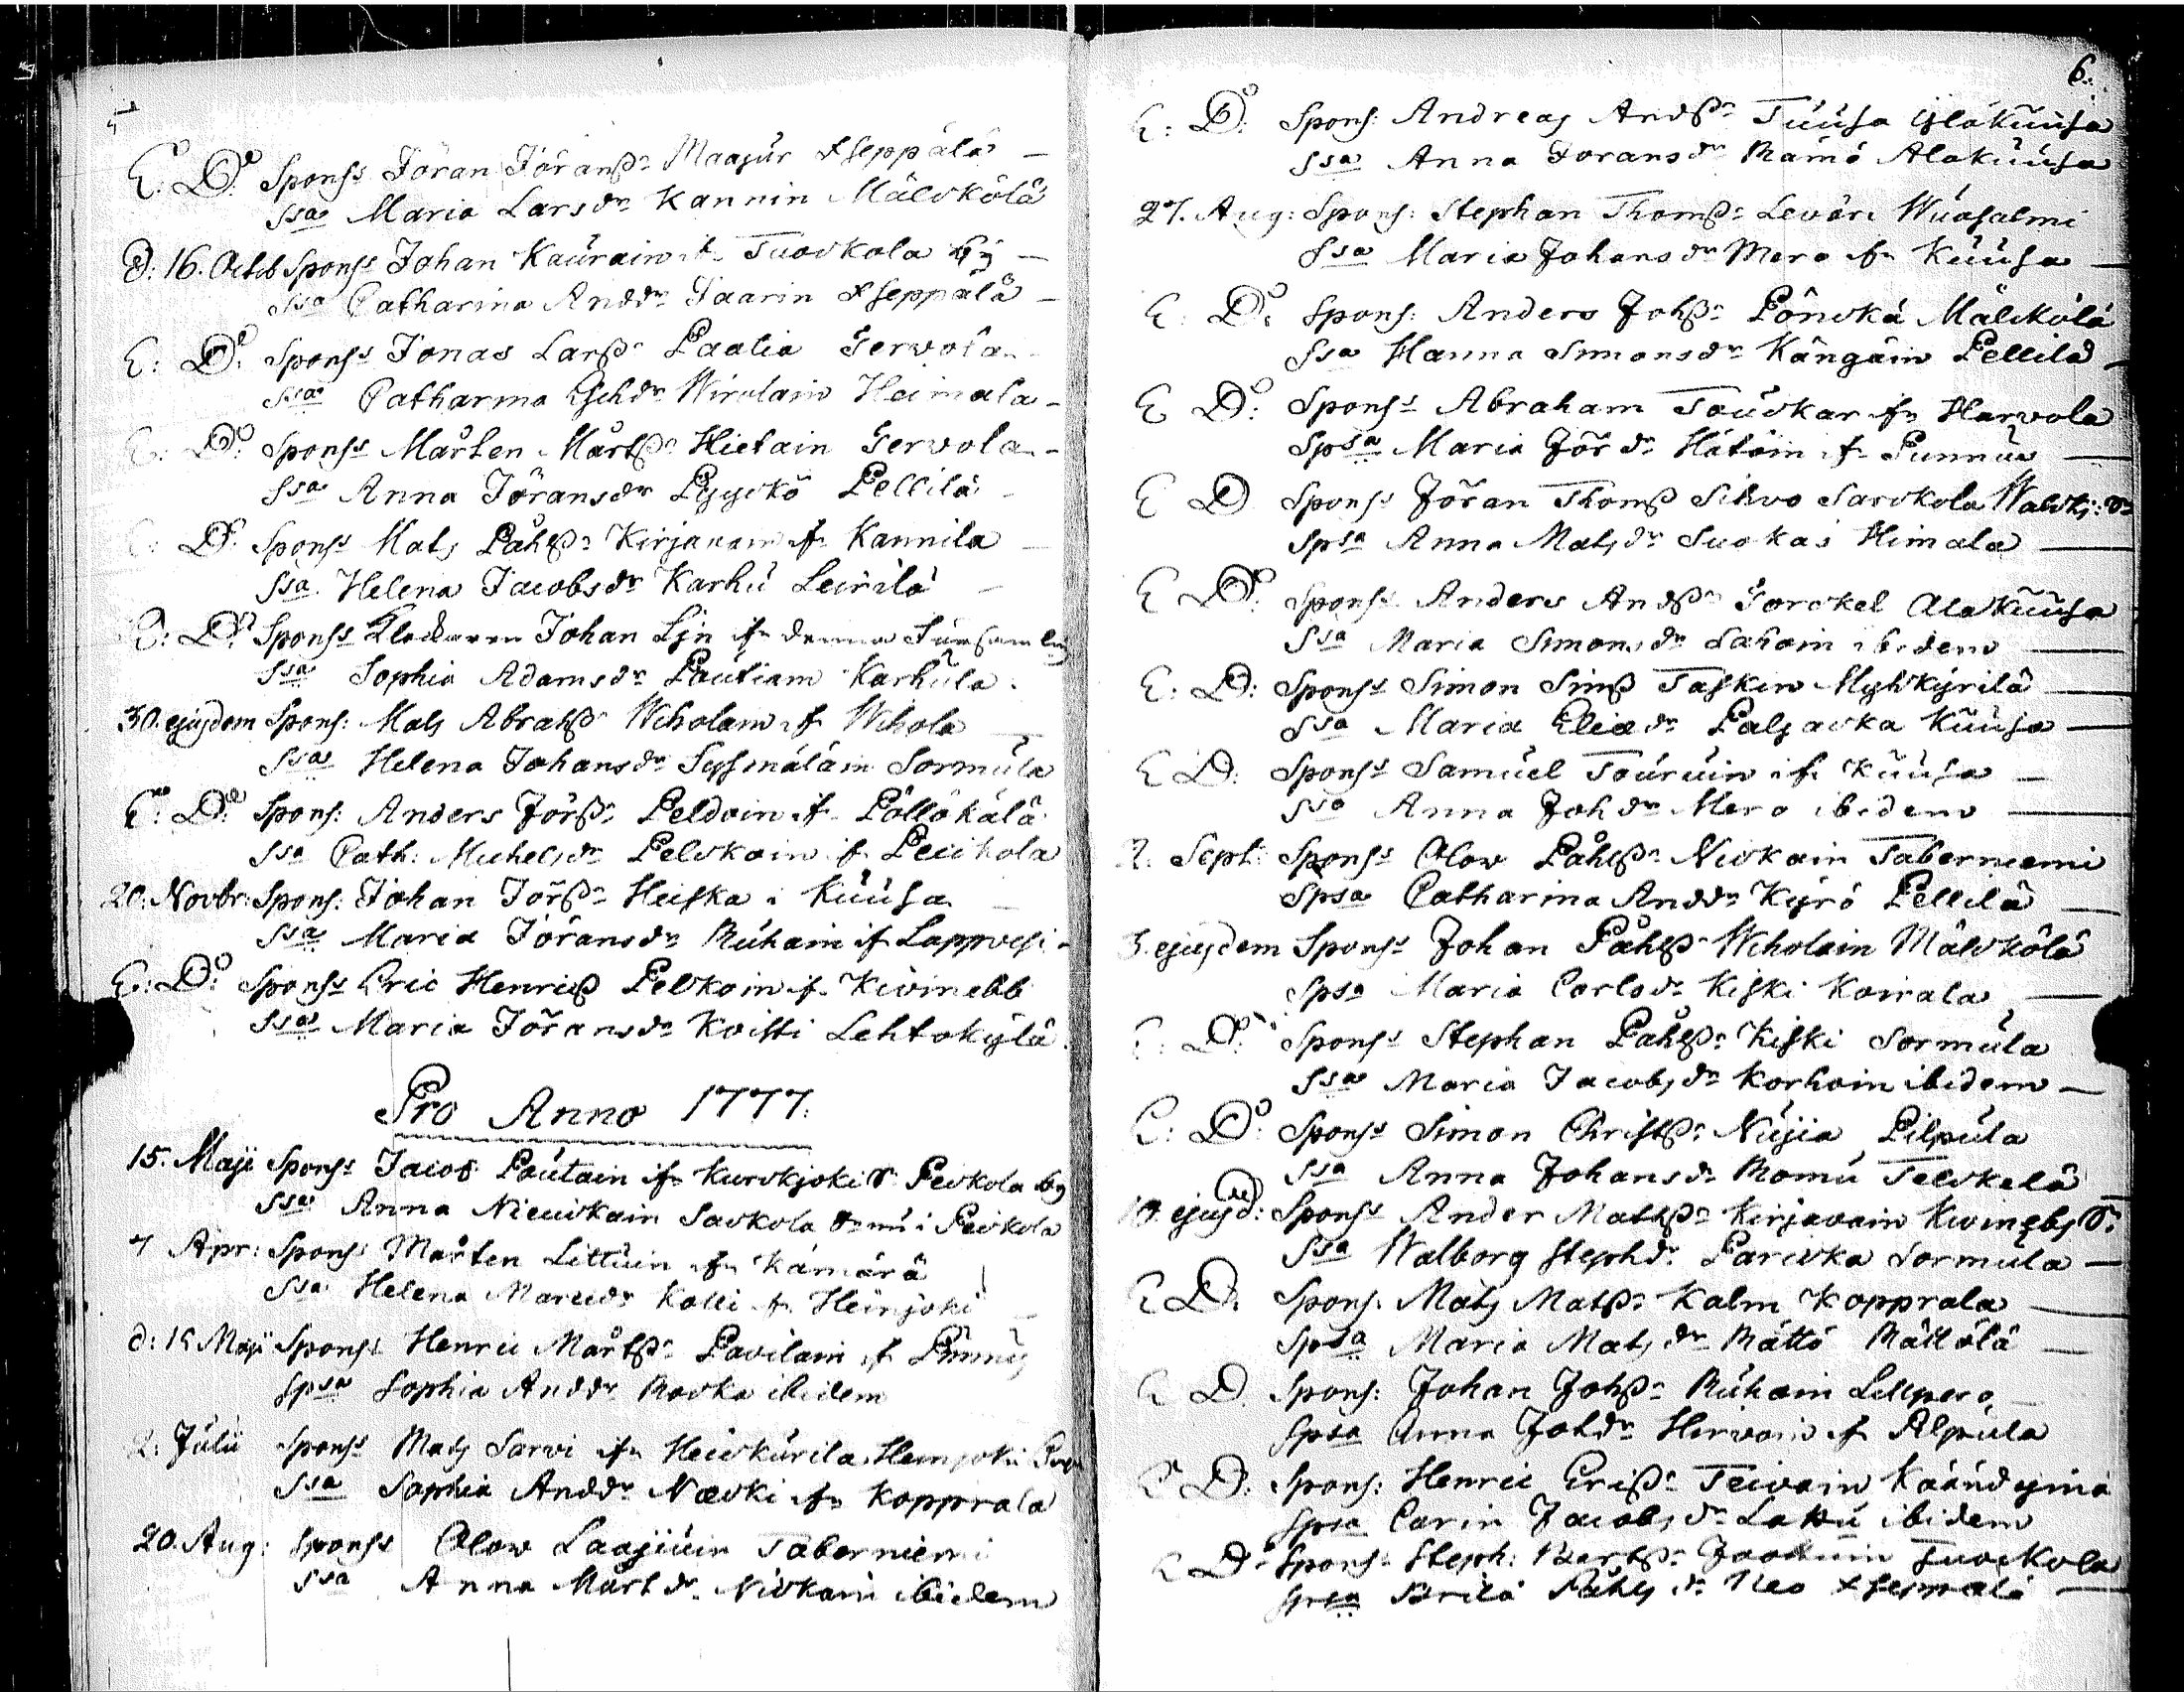 5
E: Do: Sponss Jöran Jöranß:n Maajur Xseppälä
Ssa Maria Larsdr Kannin Mälckölä
d: 16. Octob Sponss Johan Kaurain if: Tuockola By
Ssa Catharina Anddr Taarin Xseppälä
E: Do: Sponss Jonas Larß:n Paalia Jervola
Ssa Catharina Eschdr Wirolain Heimala
E: Do: Sponss Mårten Mårtß:n Hietain Jervola
Ssa Anna Jöransdr Pyyckö Pellilä
E: Do: Sponss Mats Påhlß:n Kirjavain if: Kannila
Ssa Helena Jacobsdr Karhu Leirilä
E: Do: Sponss Klockaren Johan Ljn if: denna Församling
Ssa Sophia Adamsdr Pautiain Karhula
30. ejusdem Spons: Mats Abrahß:n Wiholain if: Wihola
Ssa Helena Johansdr Sysmäläin Sormula
E: Do: Spons: Anders Jörß:n Peldoin if: Pöllökälä
Ssa Cath: Michelsdr Pelckoin if: Pecihola
20: Novbr: Spons: Johan Jörß:n Heiska i Kuusa
Ssa Maria Jöransdr Ruhain if Lappvesi
E: Do: Sponss Eric Henricß Pelkoin if: Kivinebb
Ssa Maria Jöransdr Koisti Lehtokylä
Pro Anno 1777:
15. Maji Sponss Jacob Pautain if: Kurckjoki S: Peckola by
Ssa Anna Nieuckain Sackola S:n nu i Peckola
7 Apr: Sponss Mårten Littuin if: Kämärä
Ssa Helena Marcidr Kolli if: Heinjoki
d: 15 Maji Sponss Henric Mårtß:n Pavilain if Punnus
Spsa Sophia Anddr Rocka ibidem
2: Julii Sponss Mats Sarvi if: Heickurila Heinjoki
Ssa Sophia Anddr Næcki if: Kopprala
20. Aug: Sponss Olow Laajiuin Taberniemi
Ssa Anna Mårtdr Nickain ibidem
6.
E: Do: Spons: Andreas Andß:n Tuusa Yläkuusa
Ssa Anna Joransdr Rämö Alakuusa
27. Aug: Spons: Stephan Thomß:n Levöri Wuosalmi
Ssa Maria Johansdr Mero if: Kuusa
E: Do: Spons: Anders Johß:n Pönckä Mälckölä
Ssa Hanna Simonsdr Kängäin Pellilä
E Do: Sponss Abraham Touckar if: Harvola
Spsa Maria Jördr Hätöin if: Punnus
E D Sponss Jöran Thomß Sihvo Sarckola Walckj: S:n
Spsa Anna Matsdr Suokas Himala
E Do: Sponss Anders Andß:n Torckel Alakuusa
Ssa Maria Simonsdr Lahoin ibidem
E: D: Sponss Simon Simß Taskin Myhkyrilä
Ssa Maria Eliædr Paljacka Kuusa
E D: Sponss Samuel Touruin if: Kuusa
Ssa Anna Johdr Mero ibidem
2. Sept: Sponss Olow Påhlß:n Nickain Taberniemi
Spsa Catharina Anddr Kyrö Pellilä
3. ejusdem Sponss Johan Påhlß:n Wiholain Mälckölä
Spsa Maria Carlsdr Kiski Koirala
E: Do: Sponss Stephan Påhlß:n Kiski Sormula
Ssa Maria Jacobsdr Korhoin ibidem
E: Do: Sponss Simon Christß:n Nujia Pilpula
Ssa Anna Johansdr Romu Telckelä
10. ejusd: Sponss Ander Matsß:n Kirjavain Kivinebs S:
Ssa Walborg Stephdr Paricka Sormula
E D. Spons. Mats Matß:n Kalm Kopprala
Spsa Maria Matsdr Rättö Rättölä
E D. Spons: Johan Johß:n Ruhain Lillpero
Spsa Anna Johdr Hirvoin if Pilpula
E D: Spons: Henric Erisß:n Teivain Käändymä
Spsa Carin Jacobsdr Lakku ibidem
E D: Spons: Steph: Bertß:n Tuockola
Spsa Brita Påhlsdr Neo Xseppälä